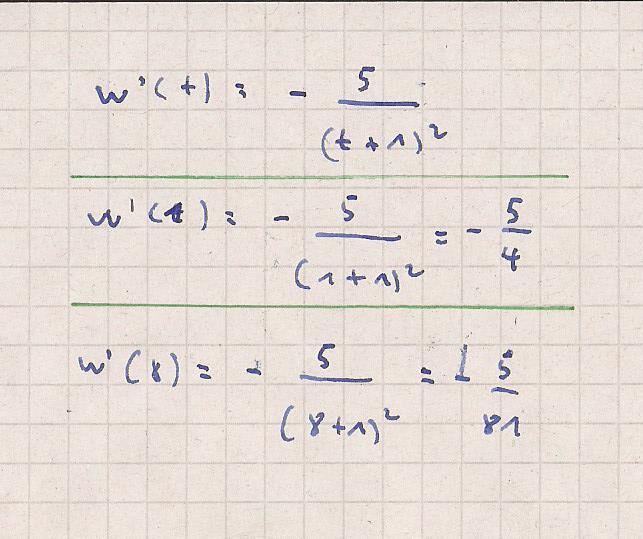 w'(t) = - 5/(t+1)²
w'(1) = - 5/(1+1)² = - 5/4
w'(8) = - 5/(8+1)² = - 5/81